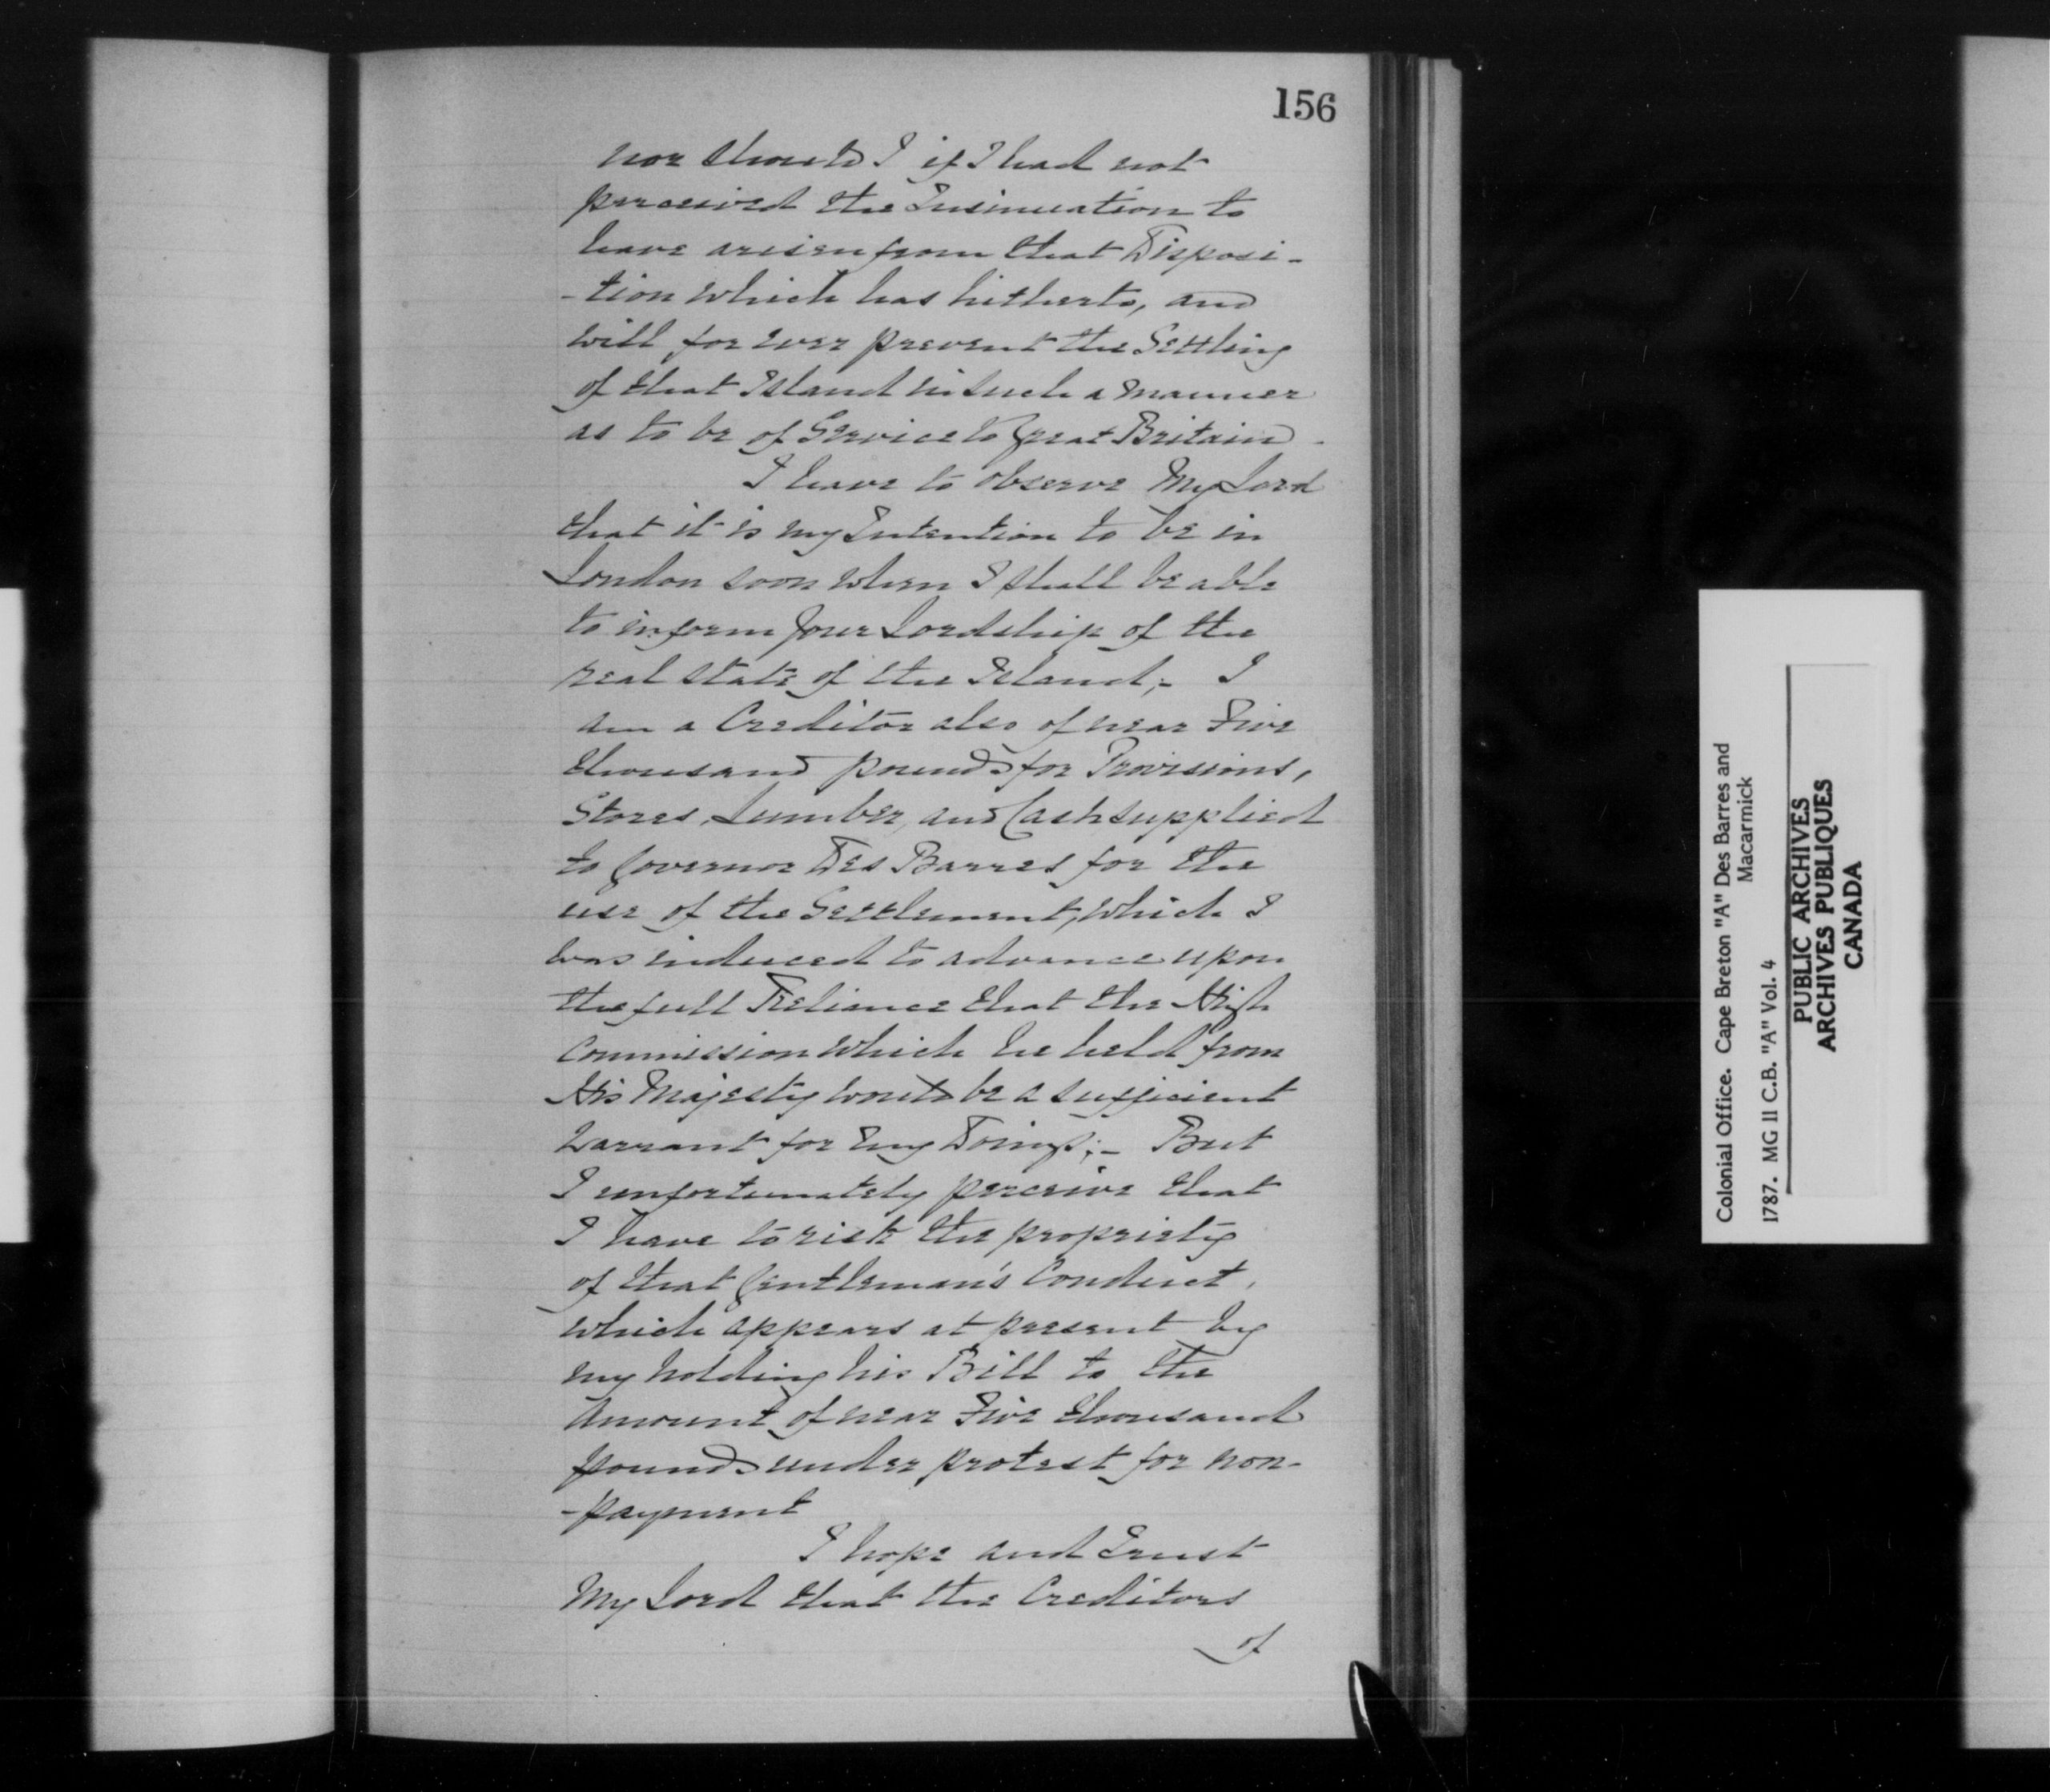 156
nor should I if I had not
perceived the Insinuation to
have arisen from that Disposi-
-tion which has hitherto, and
will for ever prevent the Settling
of that Island in such a manner
as to be of Service to Great Britain -
I have to observe My Lord
that it is my Intention to be in
London soon when I shall be able
to inform your Lordship of the
real state of the Island; - I
am a Creditor also of near Five
thousand pounds for Provisions,
Stores, Lumber, and Cash supplied
to Governor Des Barres for the
use of the Settlement, which I
was induced to advance upon
the full Reliance that the High
Commission which he held from
His Majesty would be a sufficient
Warrant for my Doings; - But
I unfortunately perceive that
I have to risk the propriety
of that Gentleman's Conduct,
which appears at present by
my holding his Bill to the
Amount of near Five thousand
pounds under protest for non-
-payment
I hope and Trust
My Lord that the Creditors
of
Colonial Office. Cape Breton "A" Des Barres and
Macarmick
1787. MG 11 C.B. "A" Vol. 4
PUBLIC ARCHIVES
ARCHIVES PUBLIQUES
CANADA